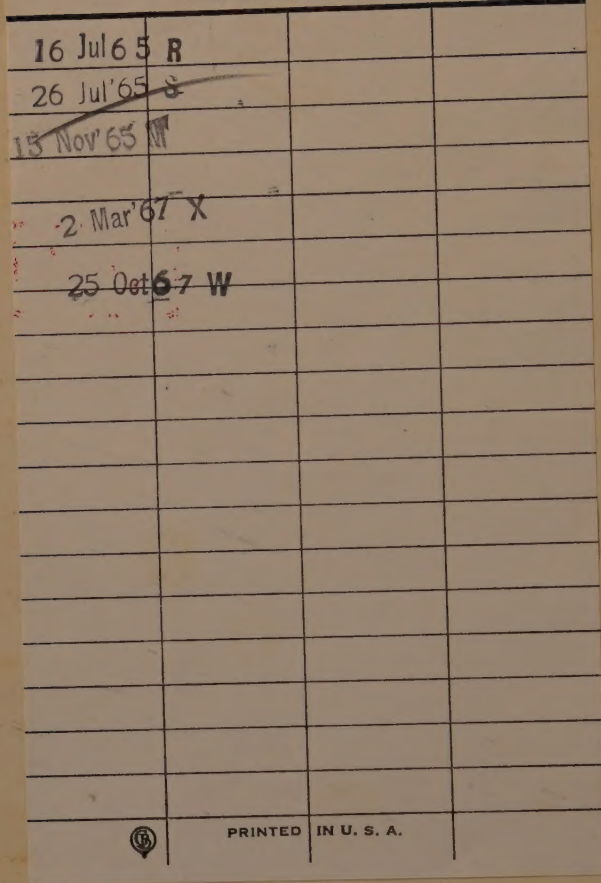 16 Jul 65 R
26 Jul'65 S
15 Nov'65 M
-2 Mar'67 X
25 Oct 67 W
PRINTED IN U. S. A.